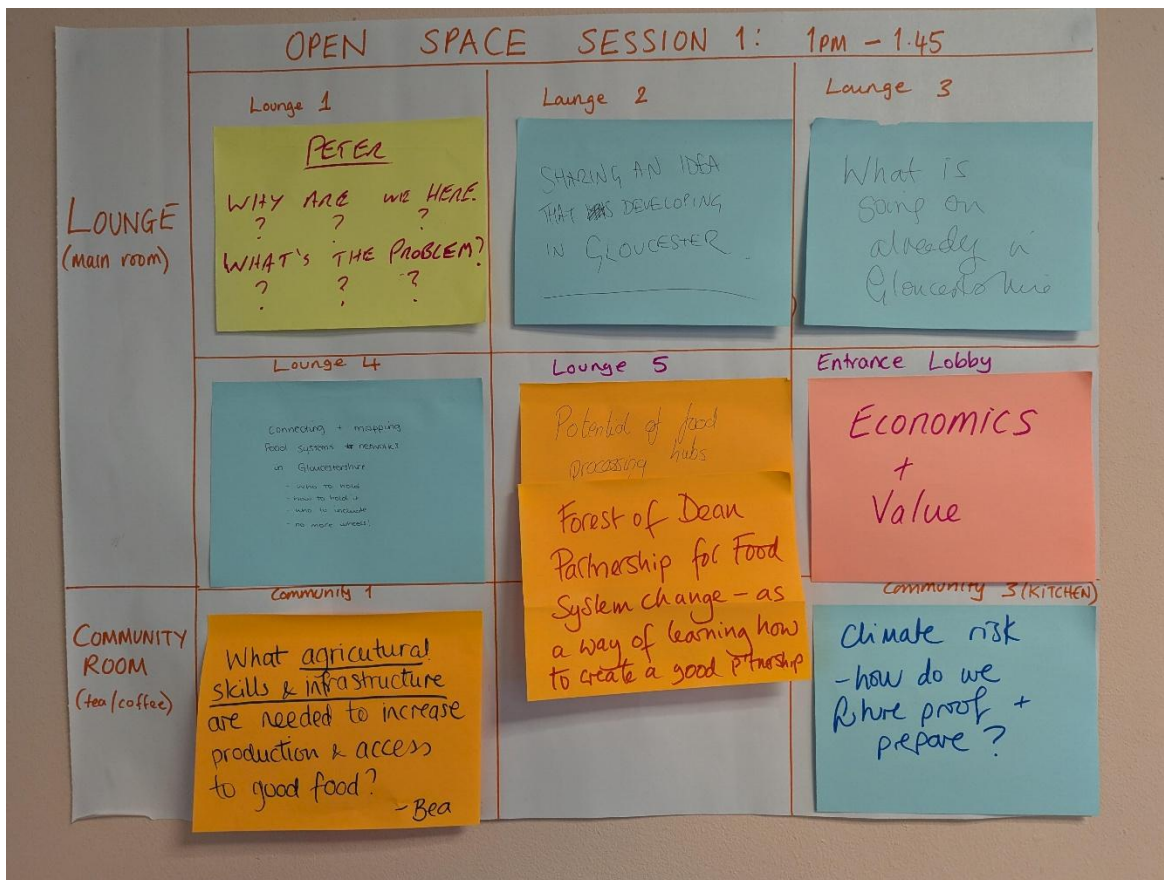 OPEN SPACE SESSION 1: 1PM – 1.45
LOUNGE
(main room)
Lounge 1
PETER
WHY ARE WE HERE.
? ? ?
WHAT'S THE PROBLEM?
? ? ?
Lounge 2
SHARING AN IDEA
THAT IS DEVELOPING
IN GLOUCESTER
Lounge 3
What is
going on
already in
Gloucestershire
Lounge 4
Connecting + mapping
Food systems networks
in Gloucestershire
- who to hold
- how to hold it
- who to include
- no more wheels!
Lounge 5
Potential of food
processing hubs
Forest of Dean
Partnership for Food
System change – as
a way of learning how
to create a good ptnership
Entrance Lobby
Economics
+
Value
COMMUNITY
ROOM
(tea/coffee)
Community 1
What agricutural
skills & infrastructure
are needed to increase
production & access
to good food?
– Bea
Community 3 (KITCHEN)
Climate risk
- how do we
future proof +
prepare?